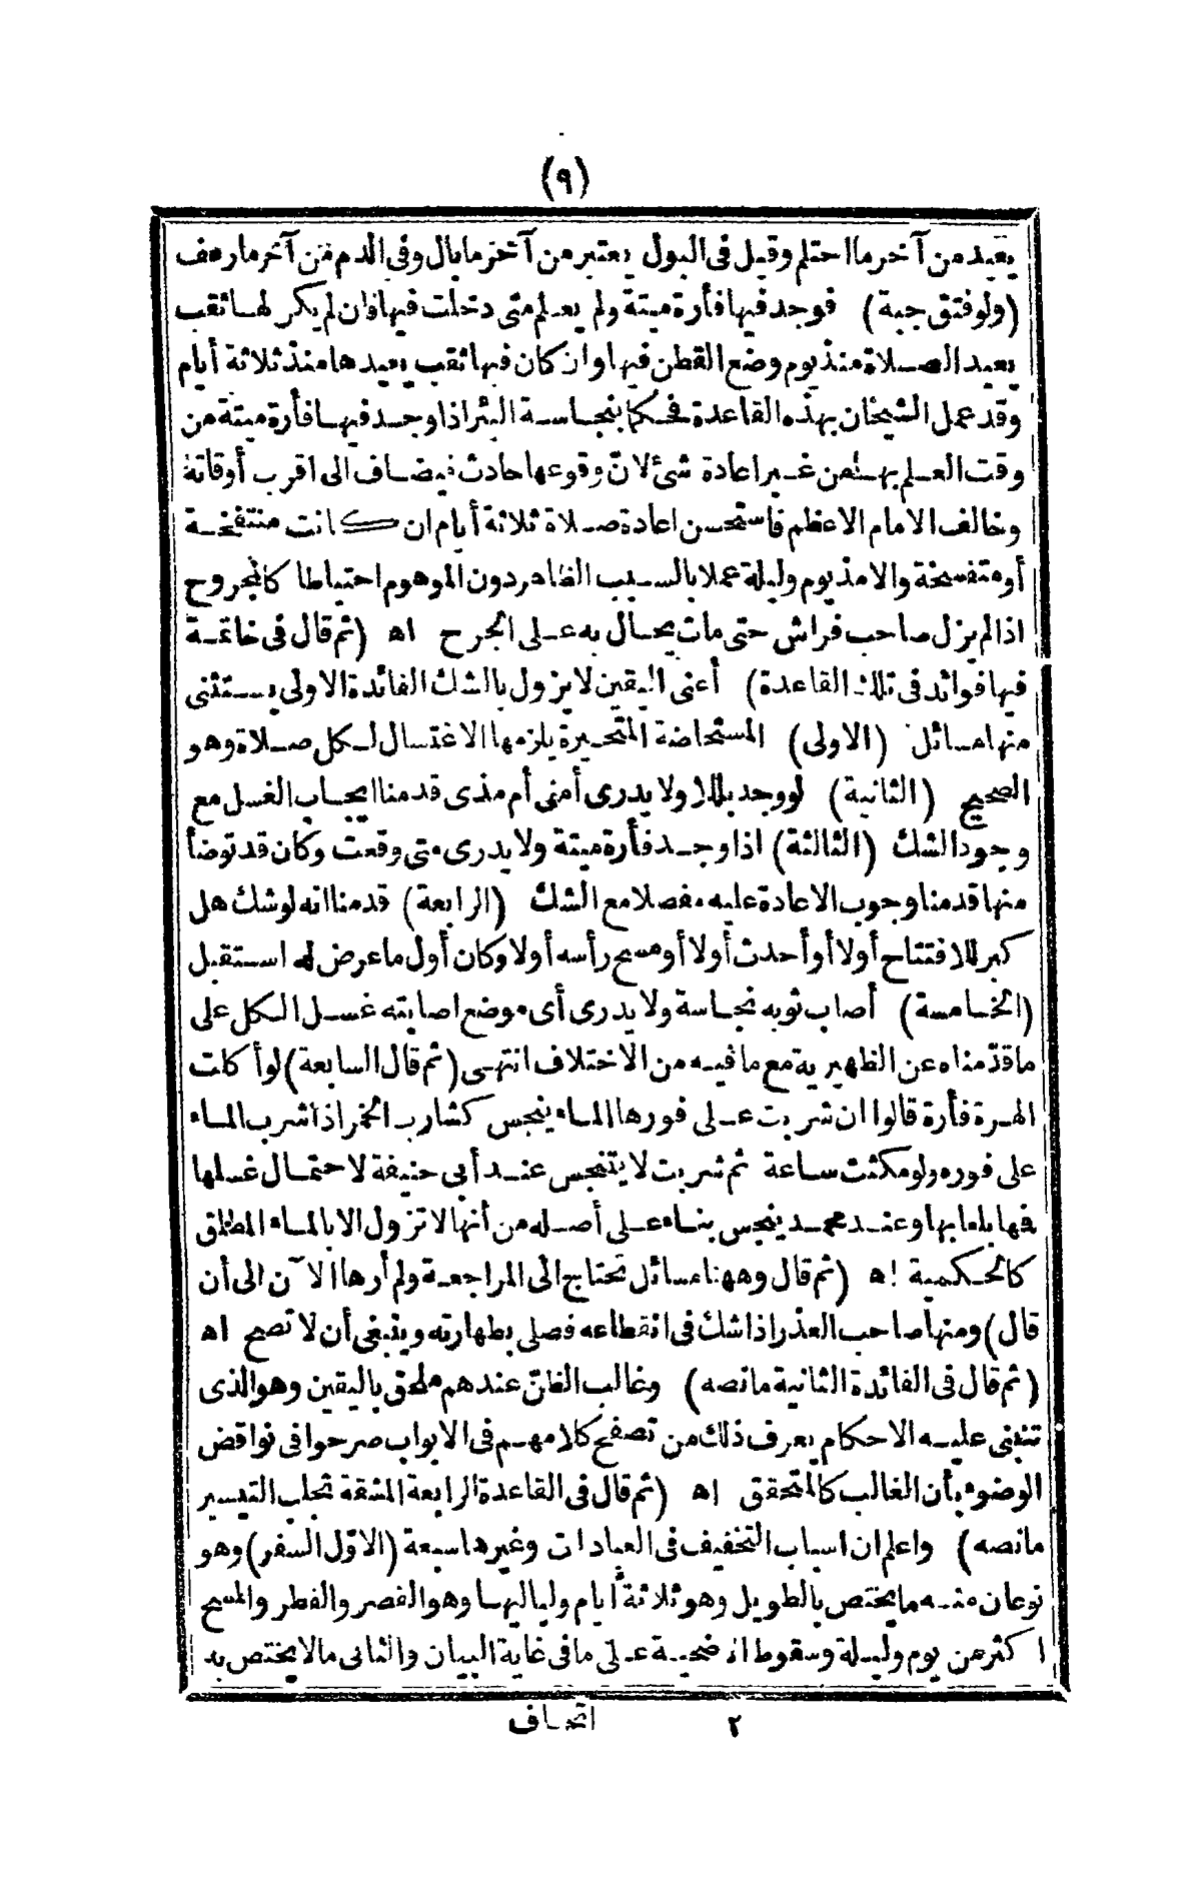 (٩)
يعيد من آخر ما احتلم وقيل فى البول يعتبر من آخر ما بال وفى الدم من آخر ما رعف
(ولو فتق جبة) فوجد فيها فأرة ميتة ولم يعلم متى دخلت فيها فان لم يكن لها ثقب
يعيد الصلاة منذ يوم وضع القطن فيها وان كان فيها ثقب يعيدها منذ ثلاثة أيام
وقد عمل الشيخان بهذه القاعدة فحكما بنجاسة البئر اذا وجد فيها فأرة ميتة من
وقت العلم بها من غير اعادة شئ لانّ وقوعها حادث فيضاف الى اقرب أوقاته
وخالف الامام الاعظم فاستحسن اعادة صلاة ثلاثة أيام ان كانت منتفخة
أو متفسخة والا مذ يوم وليلة عملا بالسبب الظاهر دون الموهوم احتياطا كالمجروح
اذا لم يزل صاحب فراش حتى مات يحال به على الجرح اه (ثم قال فى خاتمة
فيها فوائد فى تلك القاعدة) أعنى اليقين لا يزول بالشك الفائدة الاولى يستثنى
منها مسائل (الاولى) المستحاضة المتحيرة يلزمها الاغتسال لكل صلاة وهو
الصحيح (الثانية) لو وجد بللا ولا يدرى أمنى أم مذى قدمنا ايجاب الغسل مع
وجود الشك (الثالثة) اذا وجد فأرة ميتة ولا يدرى متى وقعت وكان قد توضأ
منها قدمنا وجوب الاعادة عليه مفصلا مع الشك (الرابعة) قدمنا انه لو شك هل
كبر للافتتاح أولا أو أحدث أولا أو مسح رأسه أولا وكان أول ما عرض له استقبل
(الخامسة) أصاب ثوبه نجاسة ولا يدرى أى موضع اصابته غسل الكل على
ما قدّمناه عن الظهيرية مع ما فيه من الاختلاف انتهى (ثم قال السابعة) لو أكلت
الهرة فأرة قالوا ان شربت على فورها الماء ينجس كشارب الخمر اذا شرب الماء
على فوره ولو مكثت ساعة ثم شربت لا يتنجس عند أبى حنيفة لاحتمال غسلها
فمها بلعابها وعند محمد ينجس بناء على أصله من أنها لا تزول الا بالماء المطلق
كالحكمية اه (ثم قال وههنا مسائل تحتاج الى المراجعة ولم أرها الآن الى أن
قال) ومنها صاحب العذر اذا شك فى انقطاعه فصلى بطهارته وينبغى أن لا تصح اه
(ثم قال فى الفائدة الثانية ما نصه) وغالب الظنّ عندهم ملحق باليقين وهو الذى
تبنى عليه الاحكام يعرف ذلك من تصفح كلامهم فى الابواب صرحوا فى نواقض
الوضوء بأن الغالب كالمتحقق اه (ثم قال فى القاعدة الرابعة المشقة تجلب التيسير
ما نصه) واعلم ان اسباب التخفيف فى العبادات وغيرها سبعة (الاوّل السفر) وهو
نوعان منه ما يختص بالطويل وهو ثلاثة أيام ولياليها وهو القصر والفطر والمسح
اكثر من يوم وليلة وسقوط الاضحية على ما فى غاية البيان والثانى ما لا يختص به
٢ اتحاف